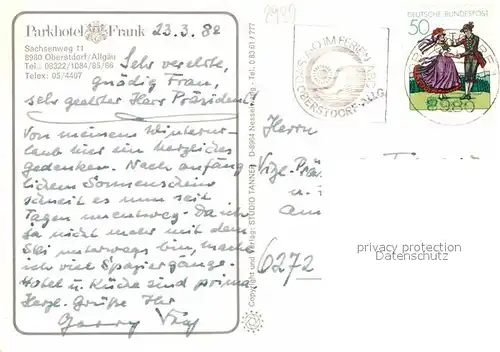 Parkhotel Frank
Sachsenweg 11
8980 Oberstdorf/Allgäu
Tel.: 08322/1084/85/86
Telex: 05/4407
23.3.82
Sehr verehrte,
gnädig Frau,
sehr geehrter Herr Präsident,
Von meinem Winterur-
laub hier ein herzliches
Gedenken. Nach anfäng-
lichem Sonnenschein
schneit es nun seit
Tagen unentwegt. Da ich
ja nicht mehr mit dem
Ski unterwegs bin, mache
ich viel Spaziergänge.
Hotel u. Küche sind prima
Herzl. Grüße Ihr
Copyright und Verlag: STUDIO TANNER · D-8964 Nesselwang · Tel. 0 83 61 / 777
OBERSTDORF
DEUTSCHE BUNDESPOST
50
8980
Herrn
Vize-Prä
u.
am
6272
privacy protection
Datenschutz